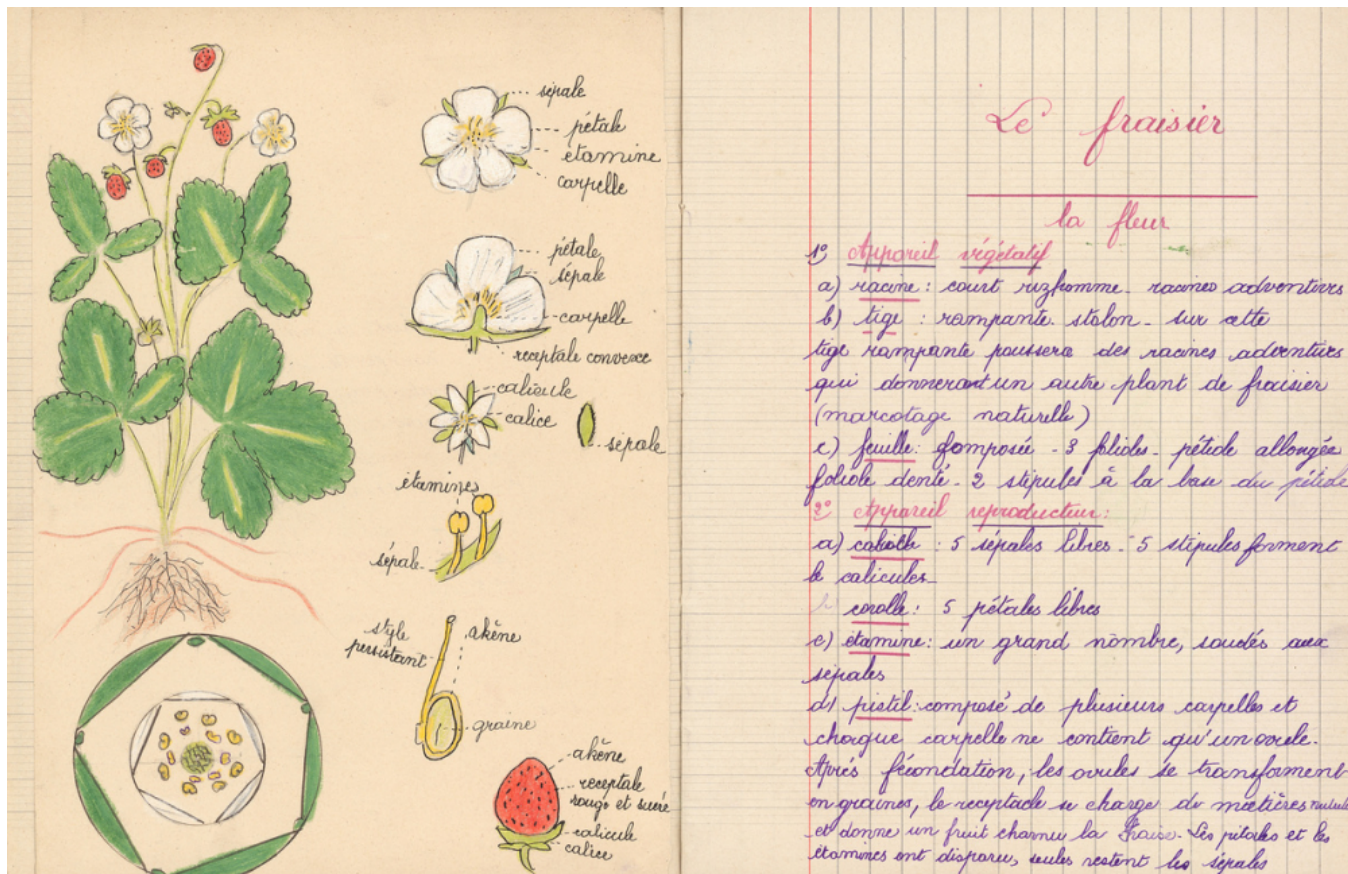 sépale
pétale
étamine
carpelle
pétale
sépale
carpelle
receptale convexe
calicule
calice
sépale
étamines
sépale
style
persistant
akène
graine
akène
receptale
rouge et sucré
calicule
calice
Le fraisier
la fleur
1º Appareil végétatif
a) racine : court rizhomme - racines adventives
b) tige : rampante - stolon - sur cette
tige rampante poussera des racines adventives
qui donneront un autre plant de fraisier
(marcotage naturelle)
c) feuille : composée - 3 folioles - pétiole allongée
foliole denté - 2 stipules à la base du pétiole
2º Appareil reproducteur :
a) : 5 sépales libres - 5 stipules forment
le calicules -
corolle : 5 pétales libres
c) étamine : un grand nombre, soudés aux
sépales
d) pistil : composé de plusieurs carpelles et
chaque carpelle ne contient qu'un ovule.
Après fécondation, les ovules se transforment
en graines, le receptacle se charge de matières
et donne un fruit charnu la fraise - Les pétales et les
étamines ont disparu, seules restent les sépales